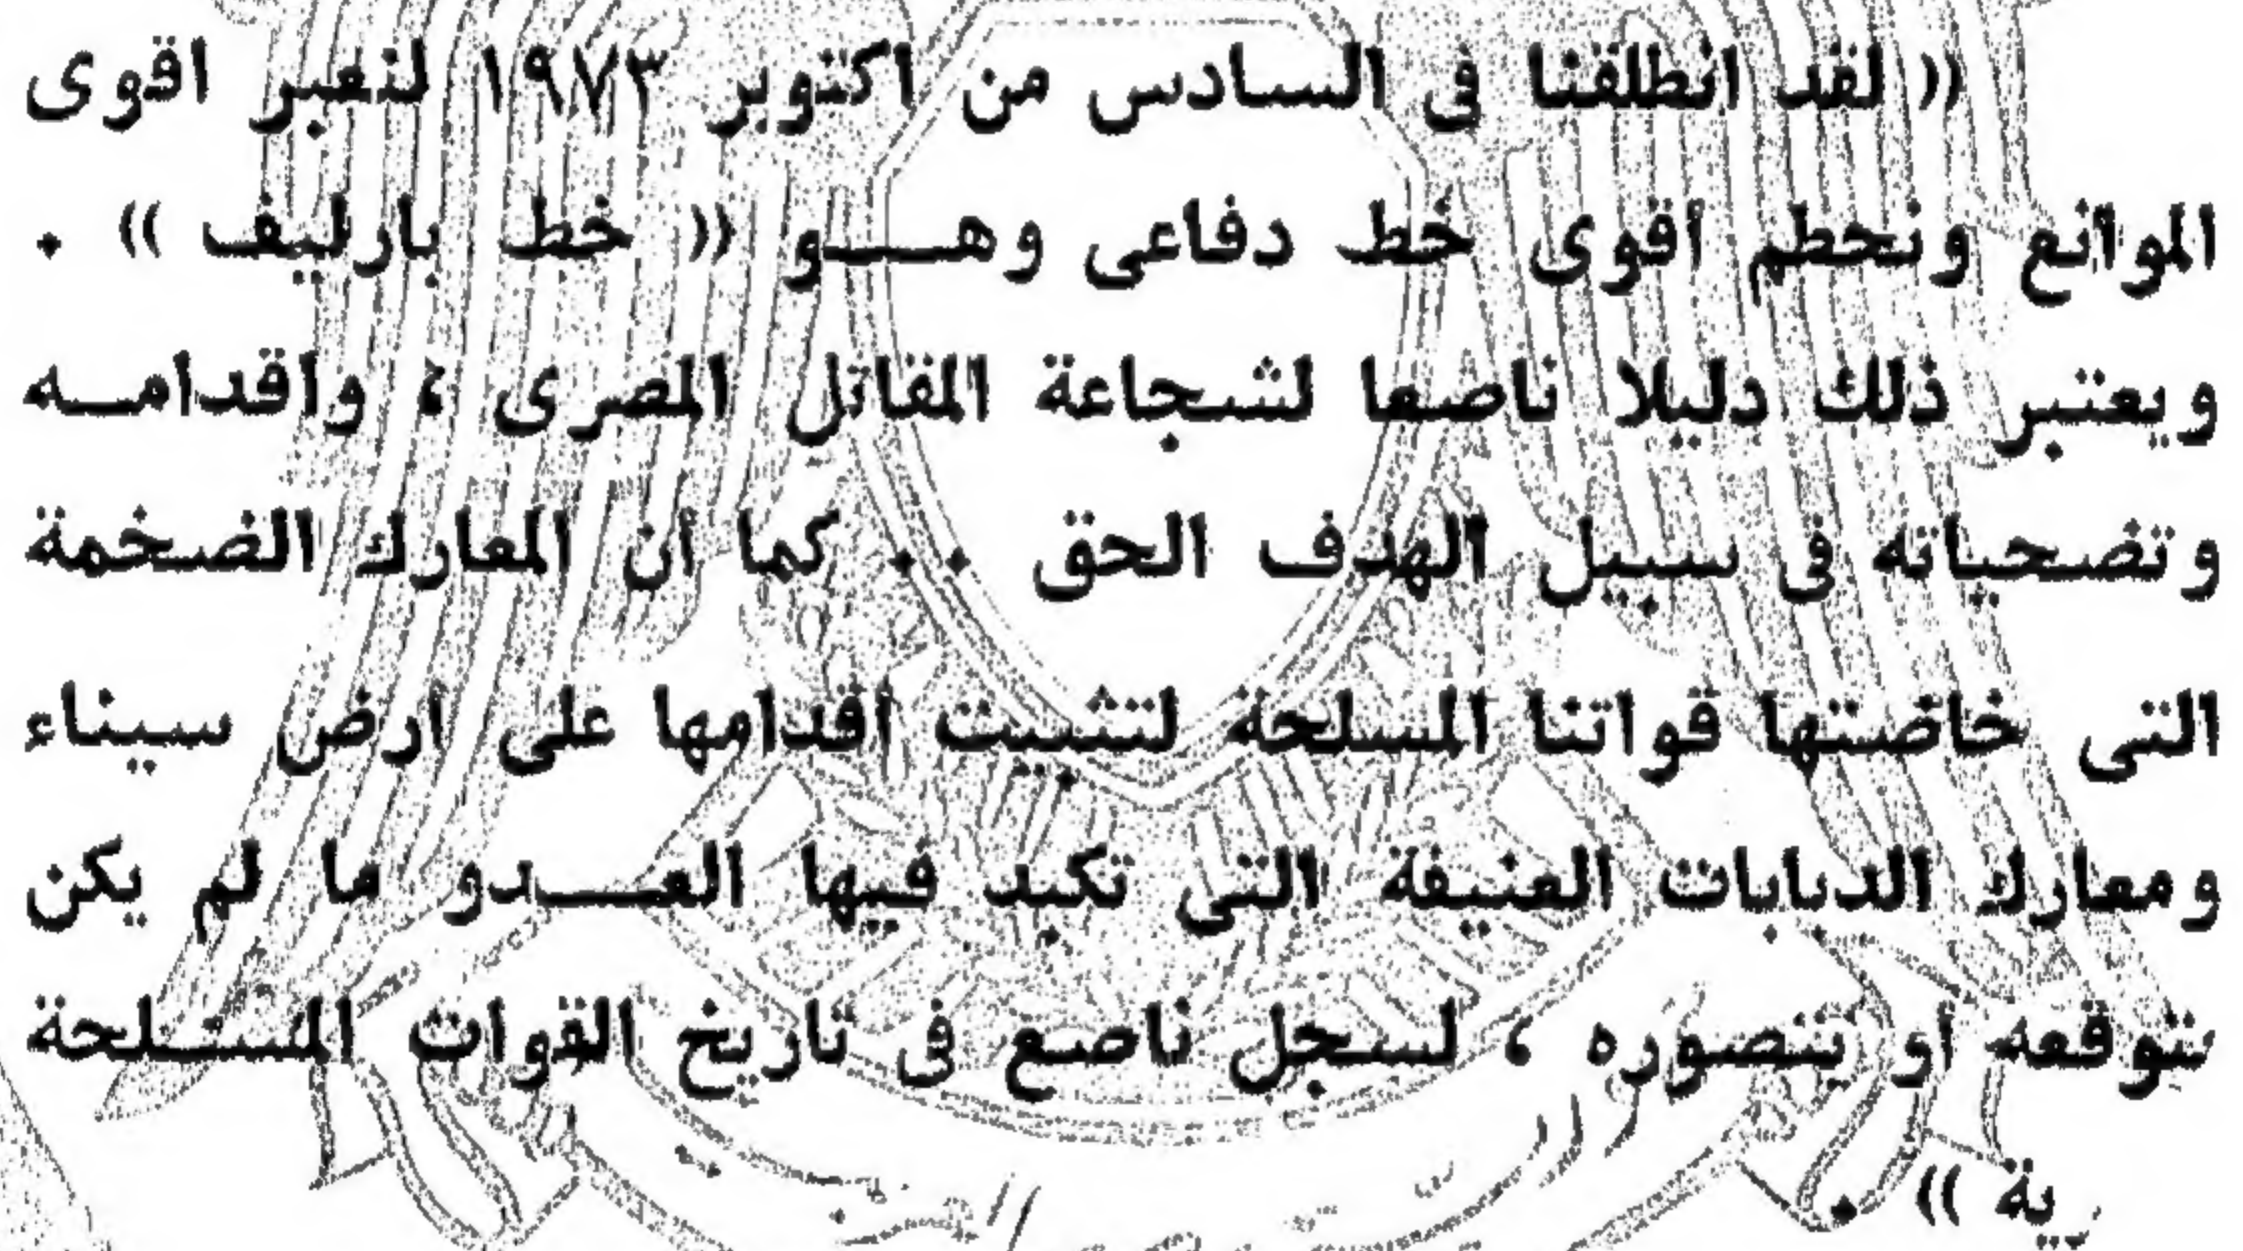 « لقد انطلقنا فى السادس من اكتوبر ١٩٧٣ لنعبر اقوى
الموانع ونحطم أقوى خط دفاعى وهـــو « خط بارليف » .
ويعتبر ذلك دليلا ناصعا لشجاعة المقاتل المصرى ، واقدامــه
وتضحياته فى سبيل الهدف الحق . . كما أن المعارك الضخمة
التى خاضتها قواتنا المسلحة لتثبيت أقدامها على أرض سيناء
ومعارك الدبابات العنيفة التى تكبد فيها العــــدو ما لم يكن
يتوقعه أو يتصوره ، لسجل ناصع فى تاريخ القوات المســـلحة
رية » .